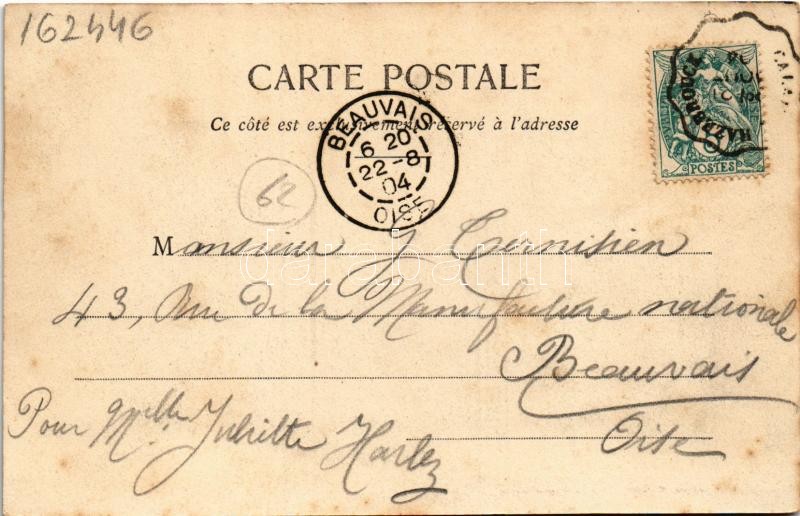 162446
CARTE POSTALE
Ce côté est exclusivement réservé à l'adresse
BEAUVAIS
6 20
22-8
04
OISE
HAZEBROUCK
CALAIS
POSTES
62
Monsieur J Ternisien
darabanth
43, Rue de la Manufacture nationale
Beauvais
Pour Melle Juliette Harlez
Oise